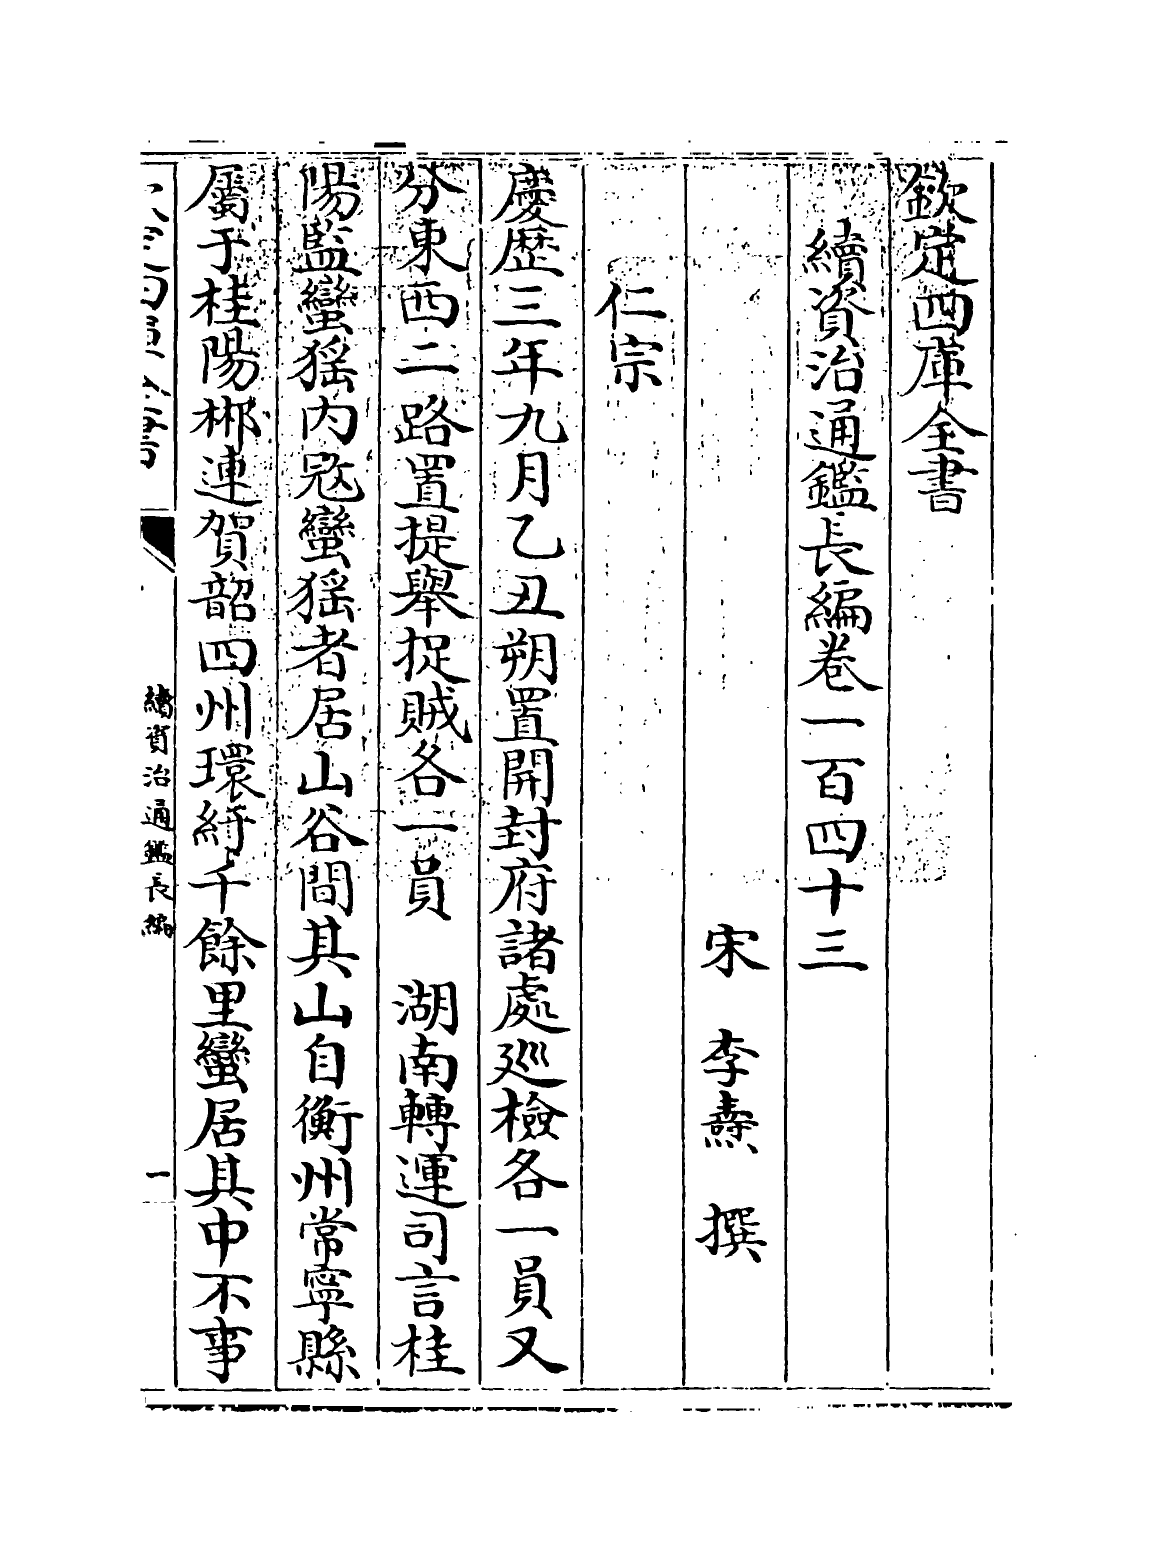 欽定四庫全書
續資治通鑑長編卷一百四十三
宋 李燾 撰
仁宗
慶歷三年九月乙丑朔置開封府諸處廵檢各一員又
分東西二路置提舉捉賊各一員 湖南轉運司言桂
陽監蠻猺内宼蠻猺者居山谷間其山自衡州常寧縣
屬于桂陽郴連賀韶四州環紆千餘里蠻居其中不事
欽定四庫全書
續資治通鑑長編
一